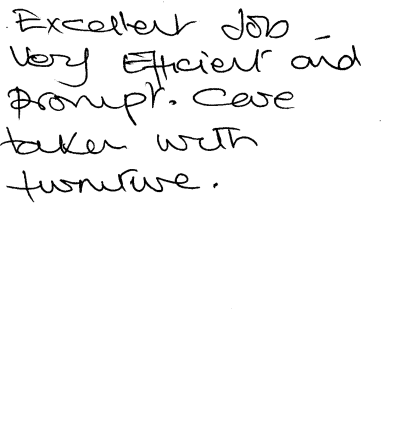 Excellent Job -
Very Efficient and
prompt. Care
taken with
furniture.